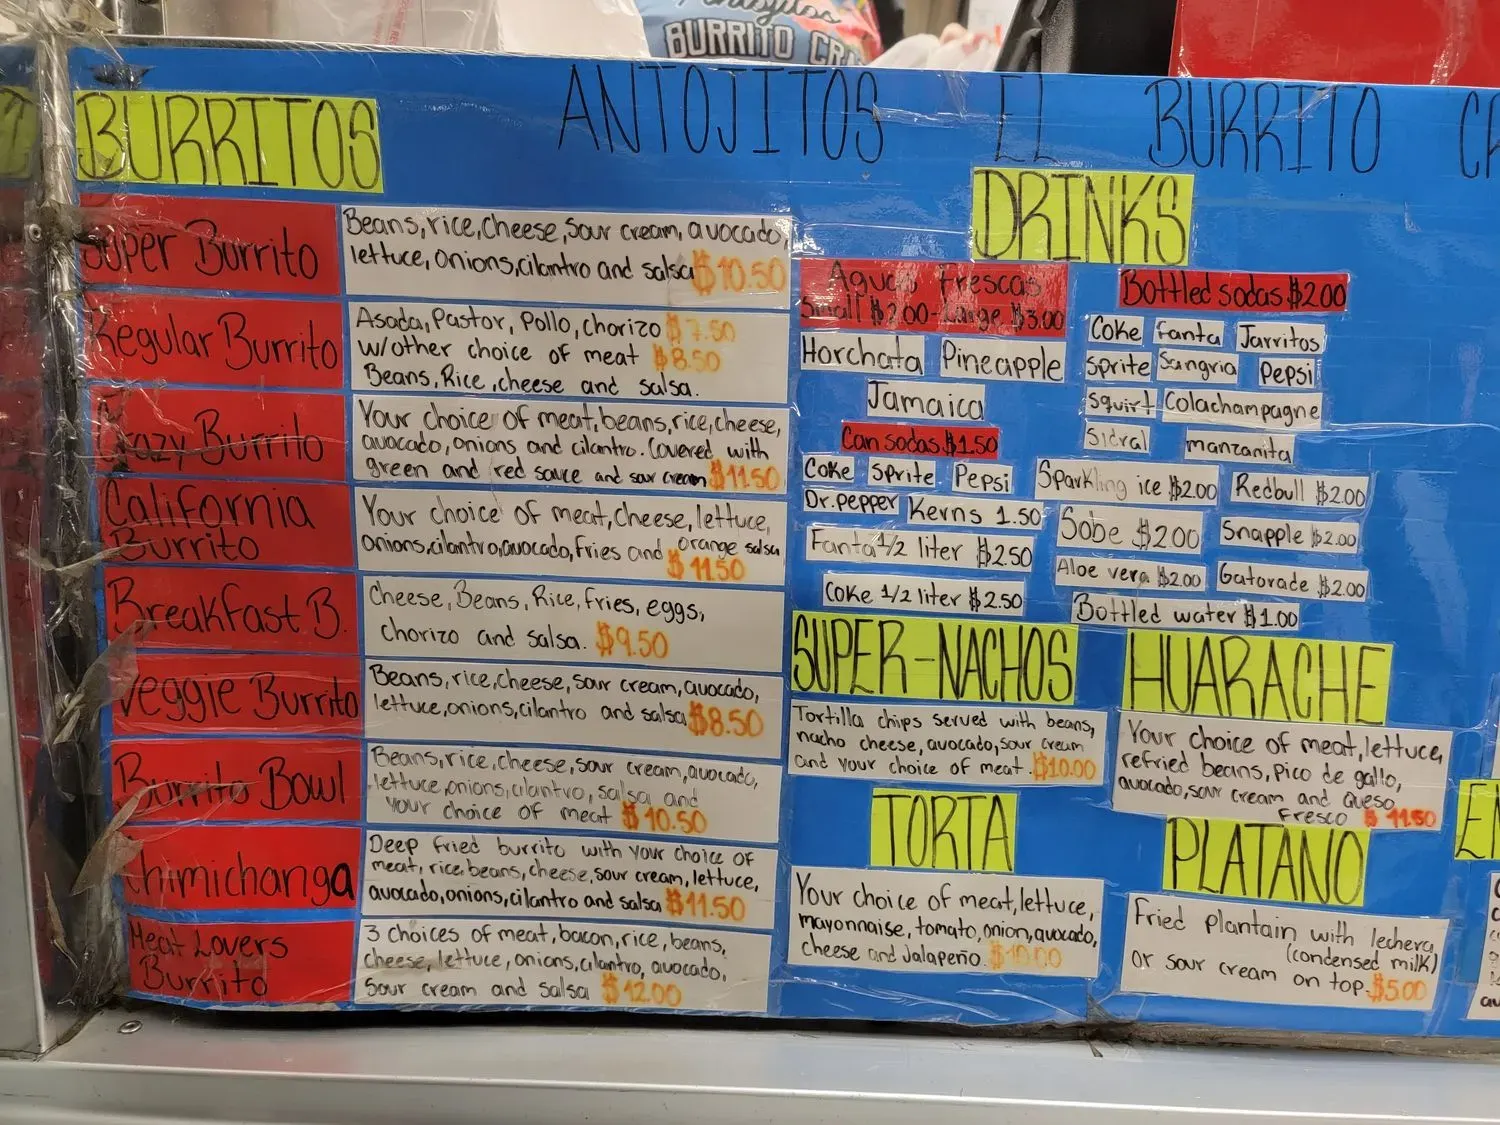 Antojitos
BURRITO CR
ANTOJITOS EL BURRITO
BURRITOS
Super Burrito
Beans, rice, cheese, sour cream, avocado,
lettuce, onions, cilantro and salsa $10.50
Regular Burrito
Asada, Pastor, Pollo, chorizo $7.50
w/other choice of meat $8.50
Beans, Rice, cheese and salsa.
Crazy Burrito
Your choice of meat, beans, rice, cheese,
avocado, onions and cilantro. Covered with
green and red sauce and sour cream $11.50
California
Burrito
Your choice of meat, cheese, lettuce,
onions, cilantro, avocado, fries and orange salsa
$11.50
Breakfast B.
Cheese, Beans, Rice, fries, eggs,
chorizo and salsa. $9.50
Veggie Burrito
Beans, rice, cheese, sour cream, avocado,
lettuce, onions, cilantro and salsa $8.50
Burrito Bowl
Beans, rice, cheese, sour cream, avocado,
lettuce, onions, cilantro, salsa and
your choice of meat $10.50
Chimichanga
Deep fried burrito with your choice of
meat, rice, beans, cheese, sour cream, lettuce,
avocado, onions, cilantro and salsa $11.50
Meat Lovers
Burrito
3 choices of meat, bacon, rice, beans,
cheese, lettuce, onions, cilantro, avocado,
sour cream and salsa $12.00
DRINKS
Aguas frescas
Small $2.00-Large $3.00
Horchata Pineapple
Jamaica
Can sodas $1.50
Coke Sprite Pepsi
Dr.pepper Kerns 1.50
Fanta 1/2 liter $2.50
Coke 1/2 liter $2.50
Bottled sodas $2.00
Coke Fanta Jarritos
Sprite Sangria Pepsi
Squirt Colachampagne
Sidral manzanita
Sparkling ice $2.00 Redbull $2.00
Sobe $2.00 Snapple $2.00
Aloe vera $2.00 Gatorade $2.00
Bottled water $1.00
SUPER-NACHOS
Tortilla chips served with beans,
nacho cheese, avocado, sour cream
and your choice of meat. $10.00
HUARACHE
Your choice of meat, lettuce,
refried beans, pico de gallo,
avocado, sour cream and queso
fresco $11.50
TORTA
Your choice of meat, lettuce,
mayonnaise, tomato, onion, avocado,
cheese and Jalapeño. $10.00
PLATANO
Fried Plantain with lechera
(condensed milk)
or sour cream on top. $5.00